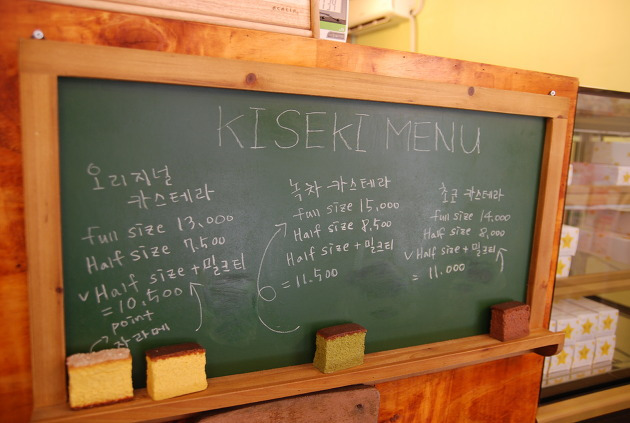 KISEKI MENU
오리지널
카스테라
full size 13,000
Half size 7,500
v Half size + 밀크티
= 10,500
point
자라메
녹차 카스테라
full size 15,000
Half size 8,500
Half size + 밀크티
= 11.500
초코 카스테라
full size 14,000
Half size 8,000
v Half size + 밀크티
= 11.000